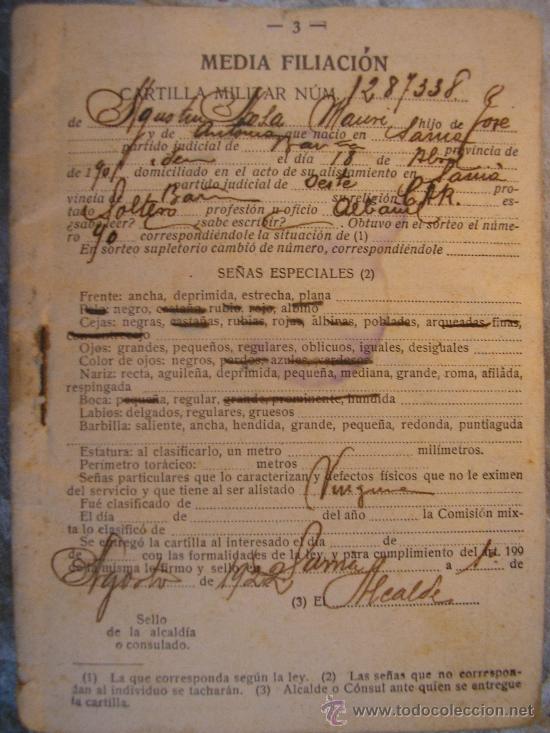 — 3 —
MEDIA FILIACIÓN
CARTILLA MILITAR NÚM. 1287338
de Agustin Mauri hijo de José
y de Antonia que nació en Sarriá
partido judicial de Barna provincia de
idem el día 18 de Abril
de 1901 domiciliado en el acto de su alistamiento en Sarriá
partido judicial de Oeste pro-
vincia de Barna su religión C.A.R. es-
tado Soltero profesión u oficio Albañil
¿sabe leer? ¿sabe escribir? Obtuvo en el sorteo el núme-
ro 90 correspondiéndole la situación de (1)
En sorteo supletorio cambió de número, correspondiéndole
SEÑAS ESPECIALES (2)
Frente: ancha, deprimida, estrecha, plana
Pelo: negro, castaño, rubio, rojo, albino
Cejas: negras, castañas, rubias, rojas, albinas, pobladas, arqueadas, finas,
Ojos: grandes, pequeños, regulares, oblicuos, iguales, desiguales
Color de ojos: negros, pardos, azules, verdosos
Nariz: recta, aguileña, deprimida, pequeña, mediana, grande, roma, afilada,
respingada
Boca: pequeña, regular, grande, prominente, hundida
Labios: delgados, regulares, gruesos
Barbilla: saliente, ancha, hendida, grande, pequeña, redonda, puntiaguda
Estatura: al clasificarlo, un metro milímetros.
Perímetro torácico: metros
Señas particulares que lo caracterizan y defectos físicos que no le eximen
del servicio y que tiene al ser alistado Ninguna
Fué clasificado de
El día de del año la Comisión mix-
ta lo clasificó de
Se entregó la cartilla al interesado el día de
de con las formalidades de la ley, y para cumplimiento del art. 199
de la misma lo firmo y sello en Sarriá a 1.º de
Agosto de 1922
(3) El Alcalde
Sello
de la alcaldía
o consulado.
(1) La que corresponda según la ley. (2) Las señas que no correspon-
dan al individuo se tacharán. (3) Alcalde o Cónsul ante quien se entregue
la cartilla.
www.todocoleccion.net